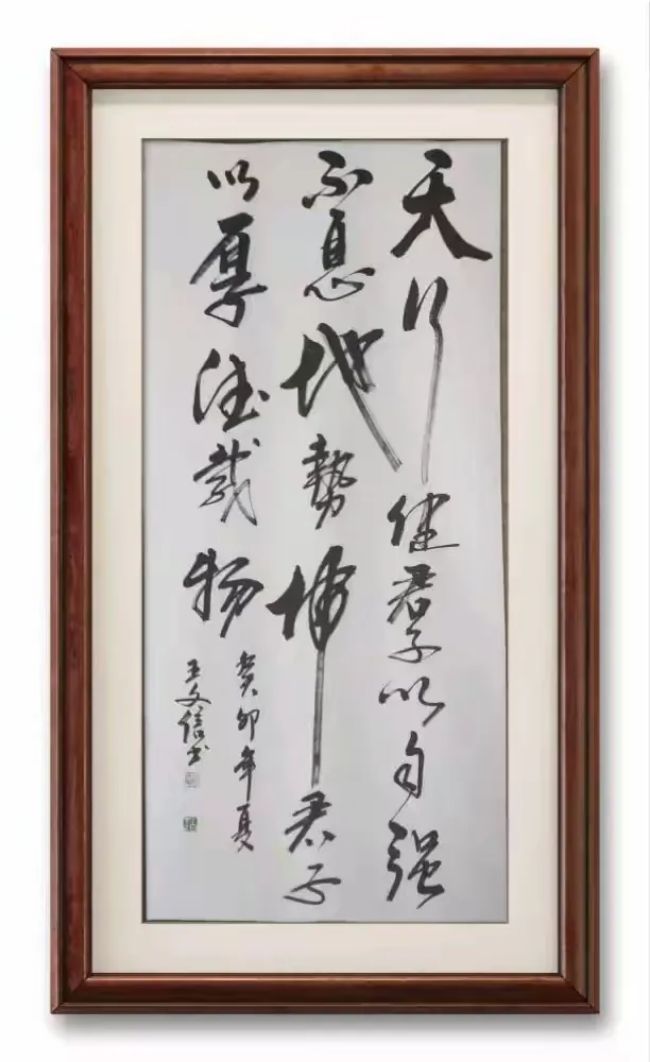 天行健君子以自强
不息地势坤君子
以厚德载物
癸卯年夏
王文信书